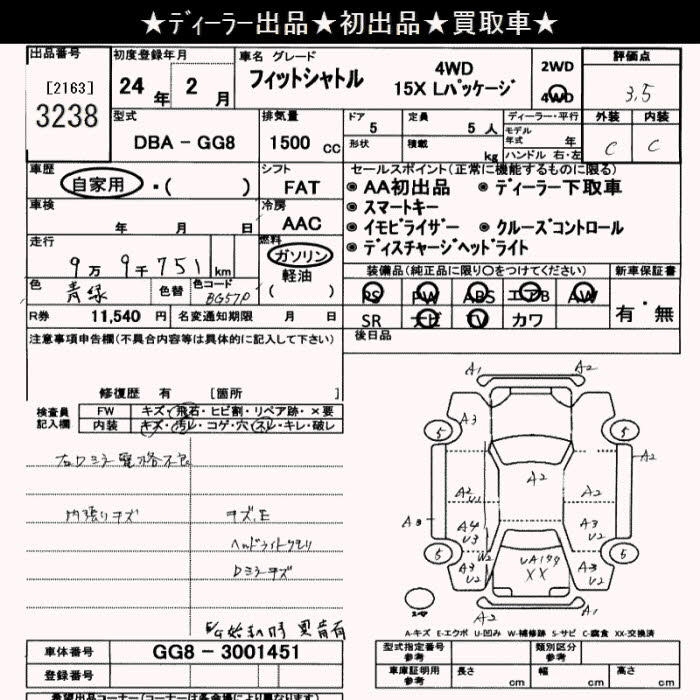 ★ディーラー出品★初出品★買取車★
出品番号 初度登録年月 車名 グレード 評価点
[2163] 3238
24 年 2 月
フィットシャトル 4WD 15X Lパッケージ
2WD 4WD
3.5
外装 内装
C C
型式 排気量 ドア 定員 ディーラー・平行
DBA - GG8 1500 cc 5 5 人
モデル年式 年
形状 積載 kg ハンドル 右・左
車歴 シフト セールスポイント(正常に機能するものに限る)
自家用 ・( ) FAT
◉ AA初出品 ◉ ディーラー下取車
◉ スマートキー
車検 冷房
年 月 日 AAC
◉ イモビライザー ◉ クルーズコントロール
◉ ディスチャージヘッドライト
走行 燃料
9万 9千 751 km
ガソリン
軽油
( )
装備品(純正品に限り○をつけてください) 新車保証書
色 色替 色コード
青緑 BG57P
PS PW ABS エアB AW
SR ナビ TV カワ
有・無
R券 11,540 円 名変通知期限 月 日
後日品
注意事項申告欄(不具合内容等は具体的に記入して下さい)
修復歴 有 [箇所 ]
検査員記入欄
FW キズ・飛石・ヒビ割・リペア跡・×要
内装 キズ・汚レ・コゲ・穴・スレ・キレ・破レ
右Dミラー電格不良
内張りキズ
キズ.E
ヘッドライトクモリ
Dミラーキズ
A1 A2
A3
5 5
A2
A2
A2 U1
A3
A4 U3
A3 U2
W2
5 5
A3 U2
UA199 XX
A3 U2
A2
A1
A-キズ E-エクボ U-凹み W-補修跡 S-サビ C-腐食 XX-交換済
車体番号 GG8 - 3001451
登録番号
型式指定番号 参考 類別区分 参考
車庫証明用 参考 長さ cm 幅 cm 高さ cm
希望出品コーナー(コーナーは各会場により異なります)